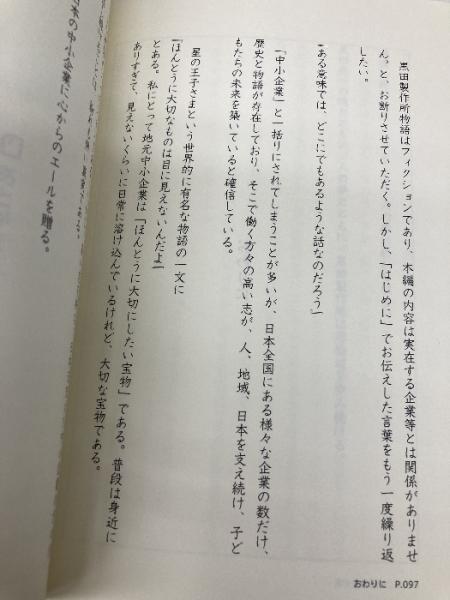 黒田製作所物語はフィクションであり、本編の内容は実在する企業等とは関係がありませ
ん。と、お断りさせていただく。しかし、「はじめに」でお伝えした言葉をもう一度繰り返
したい。
「ある意味では、どこにでもあるような話なのだろう」
「中小企業」と一括りにされてしまうことが多いが、日本全国にある様々な企業の数だけ、
歴史と物語が存在しており、そこで働く方々の高い志が、人、地域、日本を支え続け、子ど
もたちの未来を築いていると確信している。
星の王子さまという世界的に有名な物語の一文に
「ほんとうに大切なものは目に見えないんだよ」
とある。私にとって地元中小企業は「ほんとうに大切にしたい宝物」である。普段は身近に
ありすぎて、見えないくらいに日常に溶け込んでいるけれど、大切な宝物である。
本の中小企業に心からのエールを贈る。
おわりに P.097